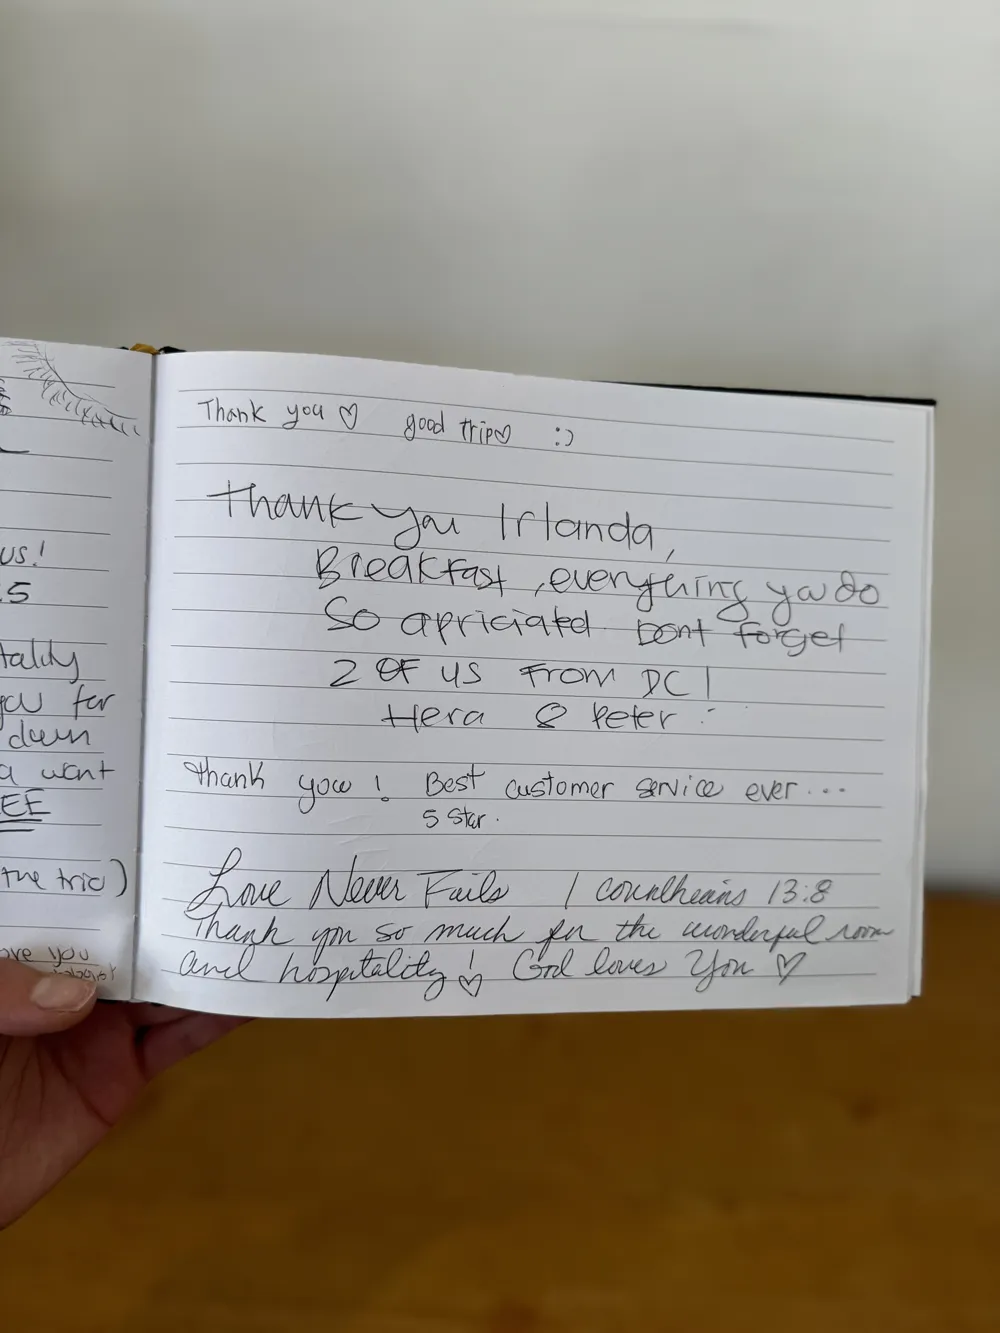 us!
.5
tality
you for
down
a want
EE
the trio)
ove you
Thank you ♡ good trip♡ :)
Thank you Irlanda,
Breakfast, everything you do
So apriciated. Dont forget
2 OF us From DC!
Hera & Peter
Thank you! Best customer service ever...
5 star.
Love Never Fails 1 Corintheians 13:8
Thank you so much for the wonderful room
and hospitality! ♡ God loves You ♡